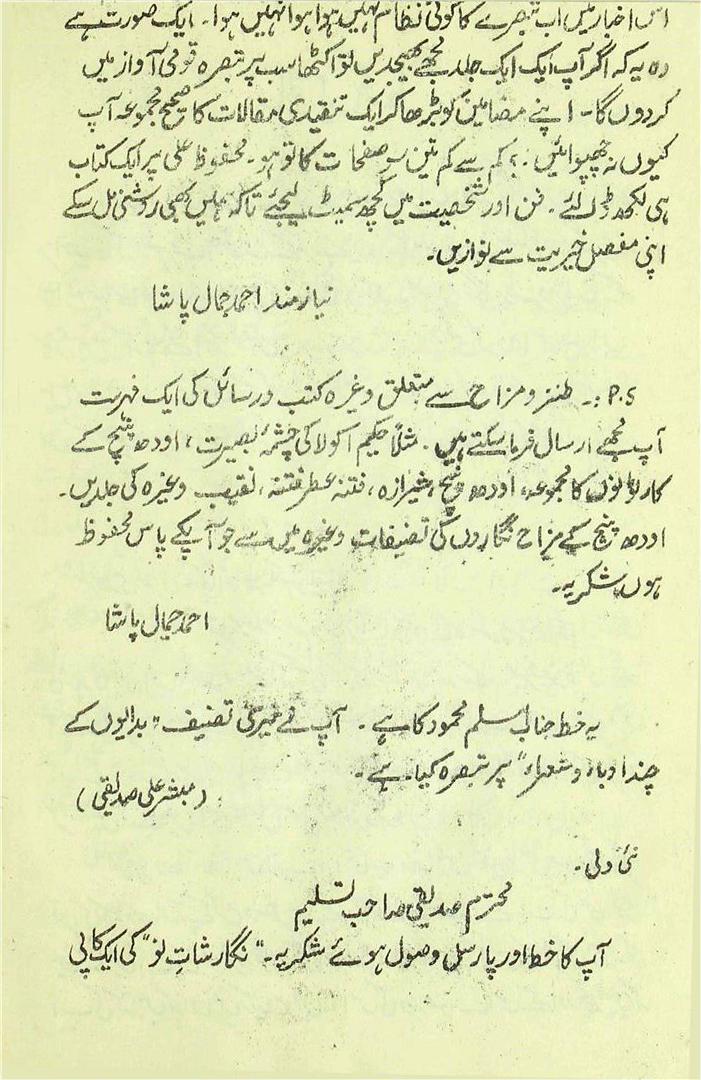 اس اخبار میں اب تبصرے کا کوئی نظام نہیں ہوا ہوا نہیں ہوا۔ ایک صورت ہے
وہ یہ کہ اگر آپ ایک ایک جلد مجھے بھیجدیں تو اکٹھا سب پر تبصرہ قومی آواز میں
کر دوں گا۔ اپنے مضامین کو بڑھا کر ایک تنقیدی مقالات کا صحیح مجموعہ آپ
کیوں نہ چھپوائیں؟ کم سے کم تین سو صفحات کا تو ہو۔ محفوظ علی پر ایک کتاب
ہی لکھ ڈالئے۔ فن اور شخصیت میں کچھ سمیٹ لیجئے تاکہ ہمیں بھی روشنی مل سکے
اپنی مفصل خیریت سے نوازیں۔
نیاز مند احمد جمال پاشا
P.S :۔ طنز و مزاح سے متعلق وغیرہ کتب و رسائل کی ایک فہرست
آپ مجھے ارسال فرما سکتے ہیں۔ مثلاً حکیم اکولا کی چشمۂ بصیرت، اودھ پنچ کے
کارٹونوں کا مجموعہ، اودھ پنچ، شیرازہ، فتنہ عطر فتنہ، نقیب وغیرہ کی جلدیں۔
اودھ پنچ کے مزاح نگاروں کی تصنیفات وغیرہ میں سے جو آپکے پاس محفوظ
ہوں شکریہ۔
احمد جمال پاشا
یہ خط جناب اسلم محمود کا ہے۔ آپ نے میری تصنیف "بدایوں کے
چند ادباء و شعراء" پر تبصرہ کیا ہے۔
(مبشر علی صدیقی)
نئی دلی۔
محترم صدیقی صاحب تسلیم
آپ کا خط اور پارسل وصول ہوئے شکریہ۔ "نگارشاتِ نو" کی ایک کاپی